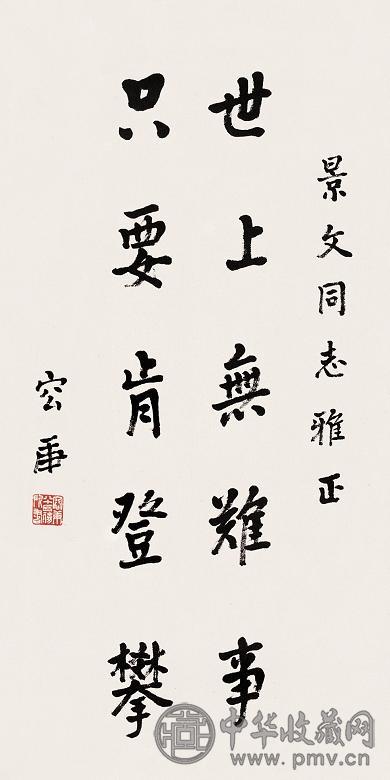 景文同志雅正
世上無難事
只要肯登攀
容庚
中华收藏网
www.pmv.cn